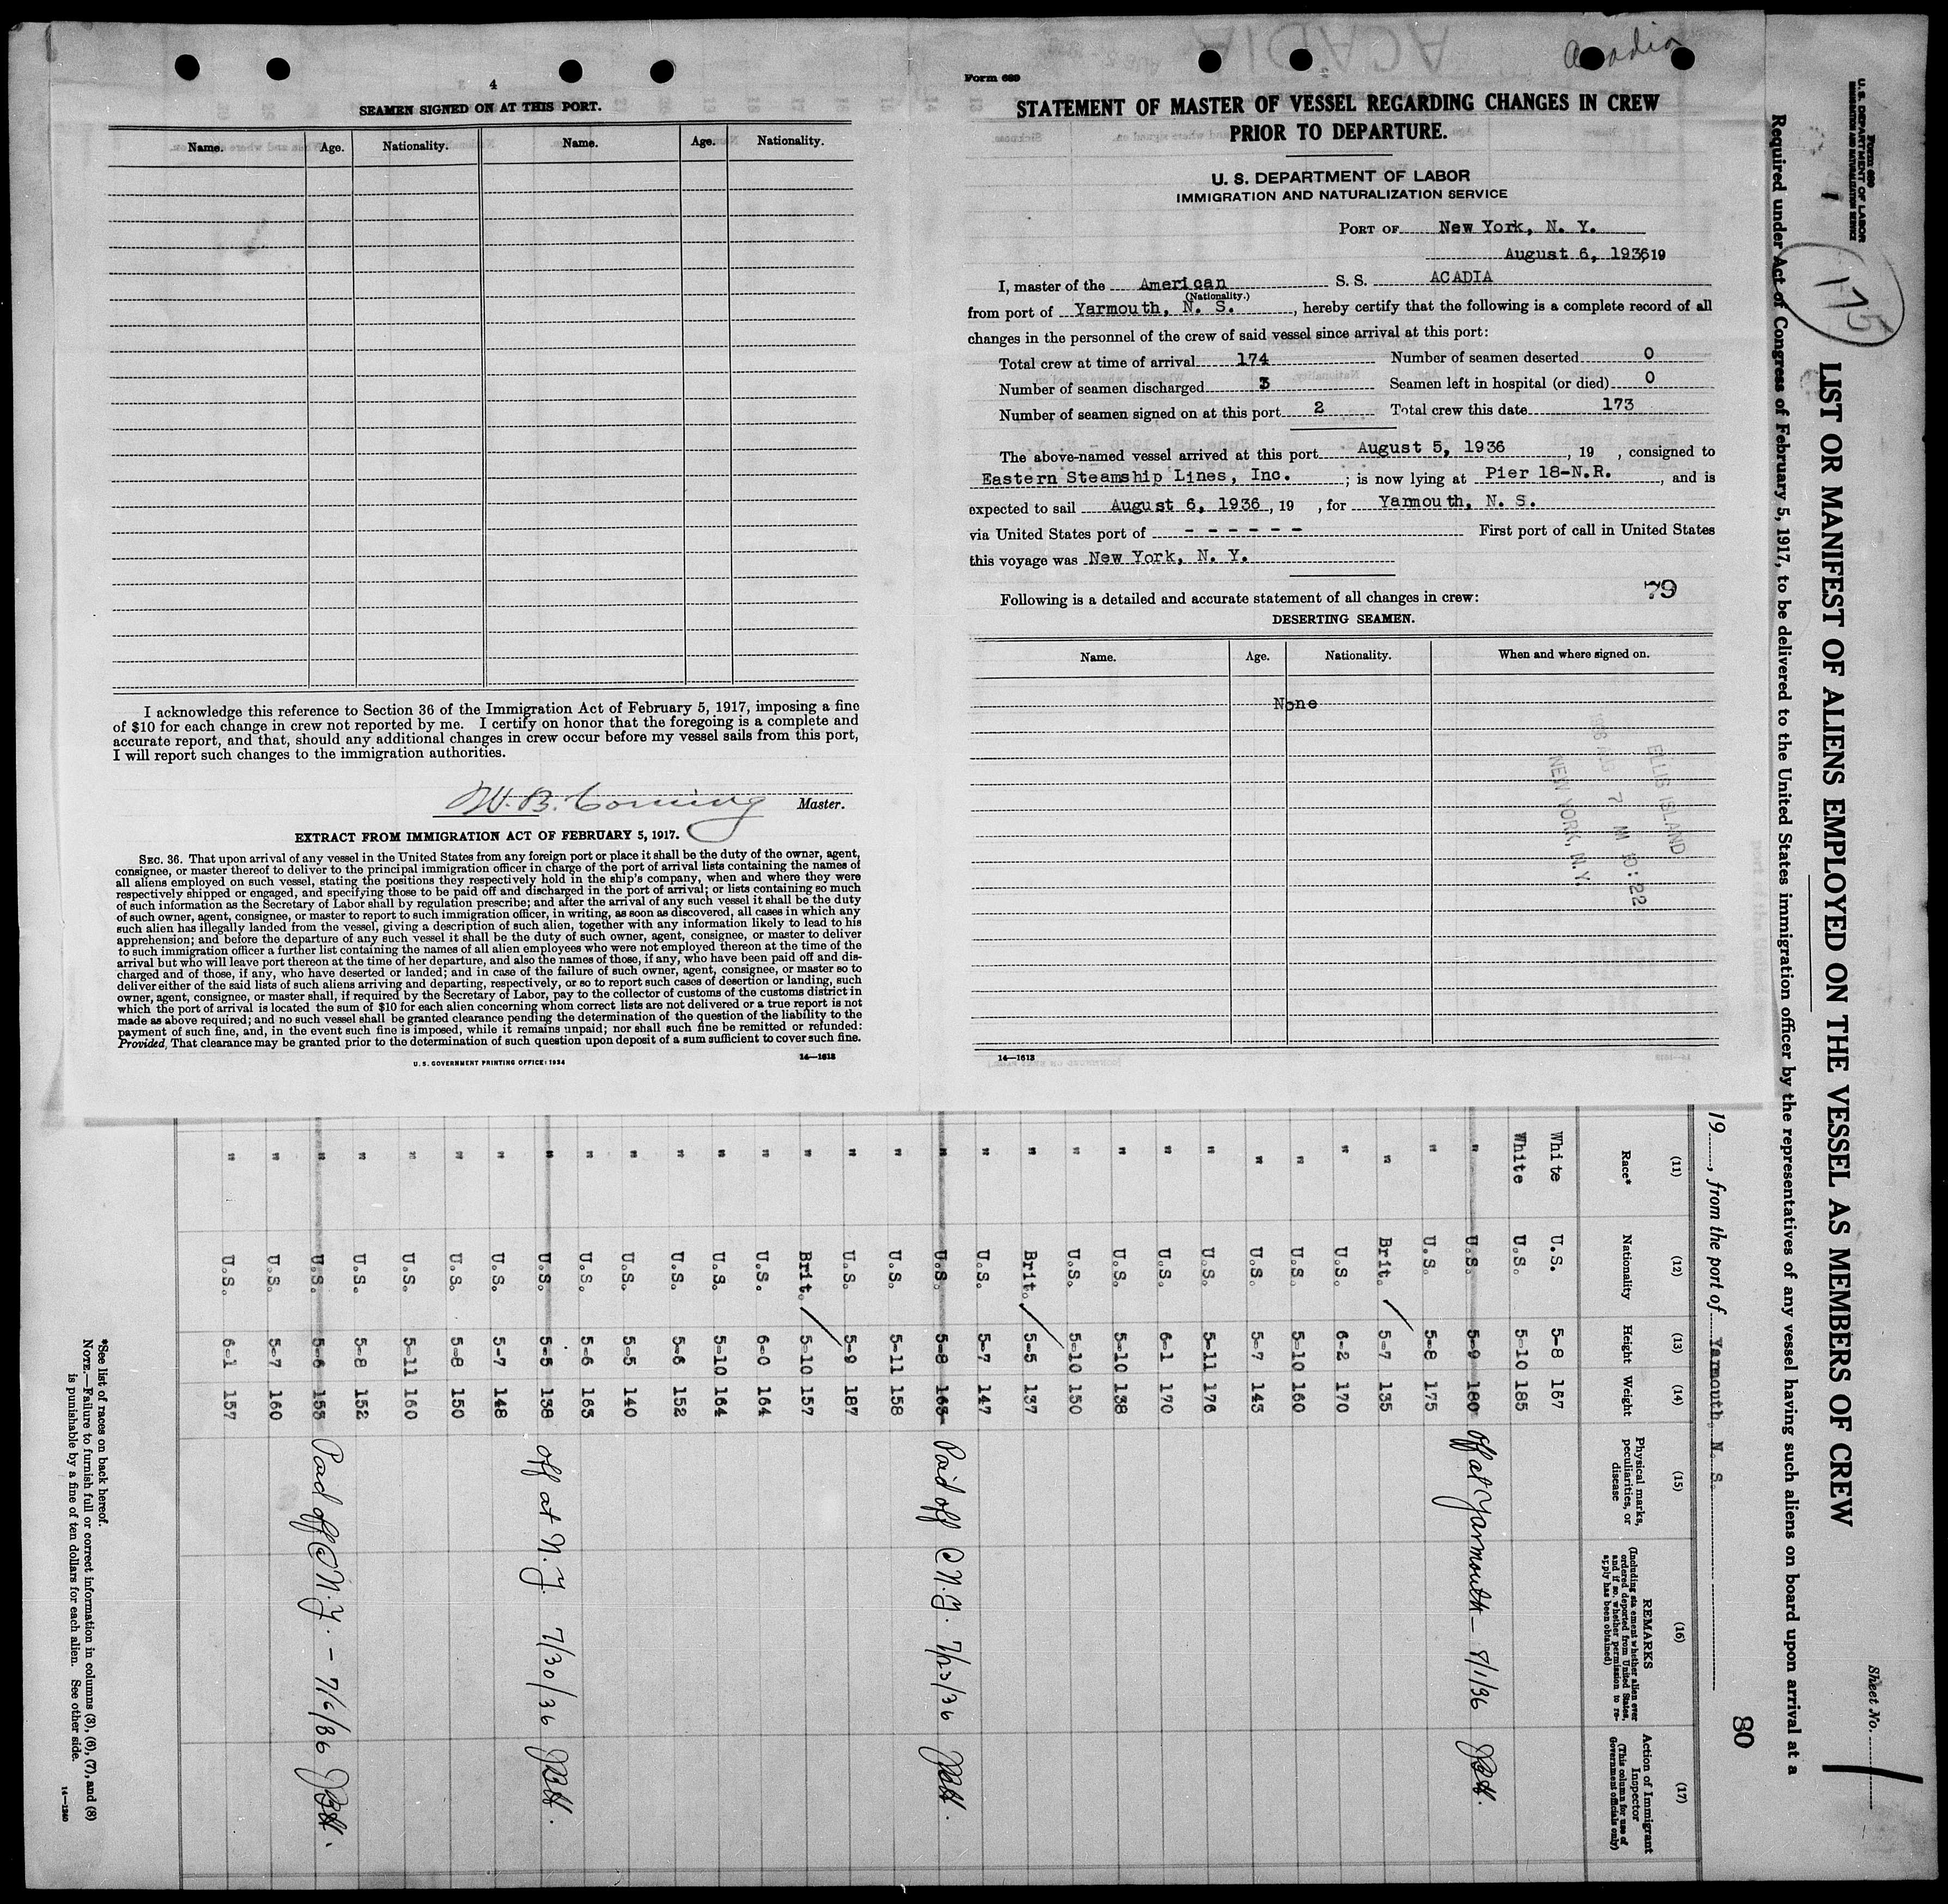 4
SEAMEN SIGNED ON AT THIS PORT.
Name. Age. Nationality. Name. Age. Nationality.
I acknowledge this reference to Section 36 of the Immigration Act of February 5, 1917, imposing a fine
of $10 for each change in crew not reported by me. I certify on honor that the foregoing is a complete and
accurate report, and that, should any additional changes in crew occur before my vessel sails from this port,
I will report such changes to the immigration authorities.
W. B. Corning Master.
EXTRACT FROM IMMIGRATION ACT OF FEBRUARY 5, 1917.
SEC. 36. That upon arrival of any vessel in the United States from any foreign port or place it shall be the duty of the owner, agent,
consignee, or master thereof to deliver to the principal immigration officer in charge of the port of arrival lists containing the names of
all aliens employed on such vessel, stating the positions they respectively hold in the ship's company, when and where they were
respectively shipped or engaged, and specifying those to be paid off and discharged in the port of arrival; or lists containing so much
of such information as the Secretary of Labor shall by regulation prescribe; and after the arrival of any such vessel it shall be the duty
of such owner, agent, consignee, or master to report to such immigration officer, in writing, as soon as discovered, all cases in which any
such alien has illegally landed from the vessel, giving a description of such alien, together with any information likely to lead to his
apprehension; and before the departure of any such vessel it shall be the duty of such owner, agent, consignee, or master to deliver
to such immigration officer a further list containing the names of all alien employees who were not employed thereon at the time of the
arrival but who will leave port thereon at the time of her departure, and also the names of those, if any, who have been paid off and dis-
charged and of those, if any, who have deserted or landed; and in case of the failure of such owner, agent, consignee, or master so to
deliver either of the said lists of such aliens arriving and departing, respectively, or so to report such cases of desertion or landing, such
owner, agent, consignee, or master shall, if required by the Secretary of Labor, pay to the collector of customs of the customs district in
which the port of arrival is located the sum of $10 for each alien concerning whom correct lists are not delivered or a true report is not
made as above required; and no such vessel shall be granted clearance pending the determination of the question of the liability to the
payment of such fine, and, in the event such fine is imposed, while it remains unpaid; nor shall such fine be remitted or refunded:
Provided, That clearance may be granted prior to the determination of such question upon deposit of a sum sufficient to cover such fine.
U. S. GOVERNMENT PRINTING OFFICE: 1934 14—1613
Acadia
Form 689
STATEMENT OF MASTER OF VESSEL REGARDING CHANGES IN CREW
PRIOR TO DEPARTURE.
U. S. DEPARTMENT OF LABOR
IMMIGRATION AND NATURALIZATION SERVICE
PORT OF New York, N. Y.
August 6, 1936, 19
I, master of the American S. S. ACADIA
(Nationality.)
from port of Yarmouth, N. S. , hereby certify that the following is a complete record of all
changes in the personnel of the crew of said vessel since arrival at this port:
Total crew at time of arrival 174 Number of seamen deserted 0
Number of seamen discharged 3 Seamen left in hospital (or died) 0
Number of seamen signed on at this port 2 Total crew this date 173
The above-named vessel arrived at this port August 5, 1936 , 19 , consigned to
Eastern Steamship Lines, Inc. ; is now lying at Pier 18-N.R. , and is
expected to sail August 6, 1936 , 19 , for Yarmouth, N. S.
via United States port of - - - - - - First port of call in United States
this voyage was New York, N. Y.
79
Following is a detailed and accurate statement of all changes in crew:
DESERTING SEAMEN.
Name. Age. Nationality. When and where signed on.
None
ELLIS ISLAND
1936 AUG 7 AM 10:22
NEW YORK, N.Y.
14—1613
Form 680
U. S. DEPARTMENT OF LABOR
IMMIGRATION AND NATURALIZATION SERVICE
1
175
Sheet No. 1
LIST OR MANIFEST OF ALIENS EMPLOYED ON THE VESSEL AS MEMBERS OF CREW
Required under Act of Congress of February 5, 1917, to be delivered to the United States immigration officer by the representatives of any vessel having such aliens on board upon arrival at a
80
19 , from the port of Yarmouth, N. S.
(11) (12) (13) (14) (15) (16) (17)
Race* Nationality Height Weight Physical marks, peculiarities, or disease REMARKS (Including statement whether alien ever ordered deported from United States, and if so, whether permission to reapply has been obtained) Action of Immigrant Inspector (This column for use of Government officials only)
White U.S. 5-8 167
White U.S. 5-10 185
" U.S. 5-9 180 Off at Yarmouth - 8/1/36 JBH.
" U.S. 5-8 175
" Brit. 5-7 135
" U.S. 6-2 170
" U.S. 5-10 160
" U.S. 5-7 143
" U.S. 5-11 176
" U.S. 6-1 170
" U.S. 5-10 138
" U.S. 5-10 150
" Brit. 5-5 137
" U.S. 5-7 147
" U.S. 5-8 163 Paid off @ N.Y. 7/23/36 JBH.
" U.S. 5-11 158
" U.S. 5-9 187
" Brit. 5-10 157
" U.S. 6-0 164
" U.S. 5-10 164
" U.S. 5-6 152
" U.S. 5-5 140
" U.S. 5-6 163
" U.S. 5-5 138 Off at N.Y. 7/30/36 JBH.
" U.S. 5-7 148
" U.S. 5-8 150
" U.S. 5-11 160
" U.S. 5-8 152
" U.S. 5-6 153 Paid off @ N.Y. - 7/6/36 JBH.
" U.S. 5-7 160
" U.S. 6-1 157
*See list of races on back hereof.
NOTE.—Failure to furnish full or correct information in columns (3), (6), (7), and (8)
is punishable by a fine of ten dollars for each alien. See other side.
14—1240